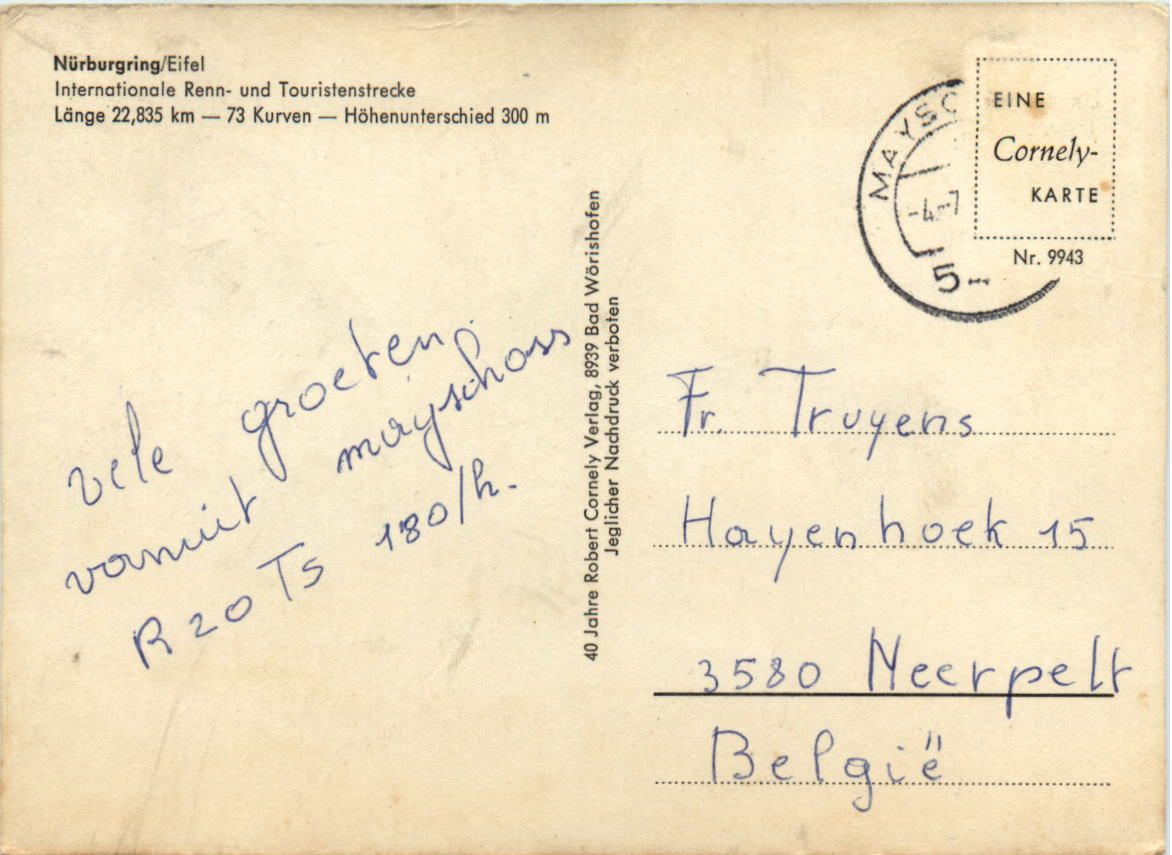 Nürburgring/Eifel
Internationale Renn- und Touristenstrecke
Länge 22,835 km — 73 Kurven — Höhenunterschied 300 m
EINE
Cornely-
KARTE
Nr. 9943
MAYSC
-4.-7
5-
vele groeten
vanuit mayschoss
R 20 Ts 180/h.
40 Jahre Robert Cornely Verlag, 8939 Bad Wörishofen
Jeglicher Nachdruck verboten
Fr. Truyens
Hayenhoek 15
3580 Neerpelt
België